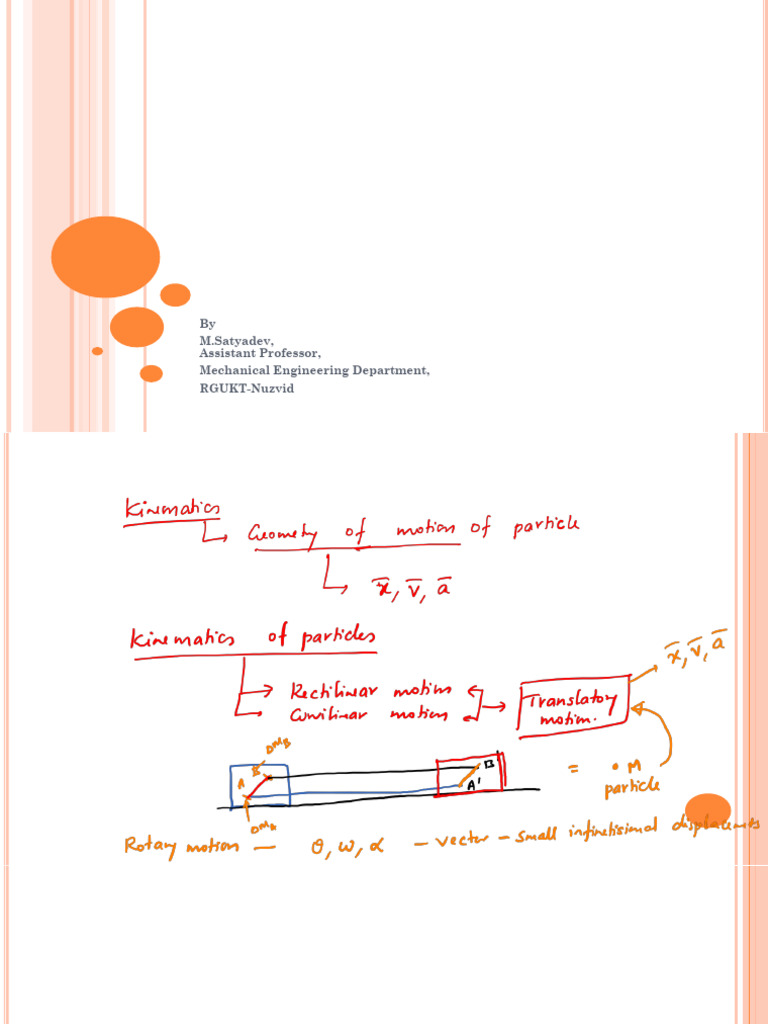 By
M.Satyadev,
Assistant Professor,
Mechanical Engineering Department,
RGUKT-Nuzvid
Kinematics
Geometry of motion of particle
x̄, v̄, ā
Kinematics of particles
x̄, v̄, ā
Rectilinear motion
Curvilinear motion
Translatory
motion.
ΔmB
A B
B
A'
= • M
particle
ΔmA
Rotary motion — θ, ω, α – vector – small infinetisimal displacements